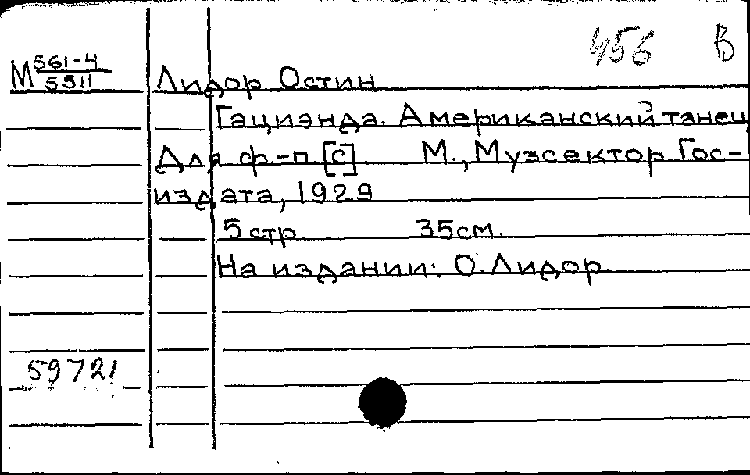 456 В
М 561-4
5311
Лидор Остин
Гациэнда. Американский танец
Для ф-п [с] М., Музсектор Гос-
издата, 1929
5 стр 35см.
На издании: О. Лидор
59721